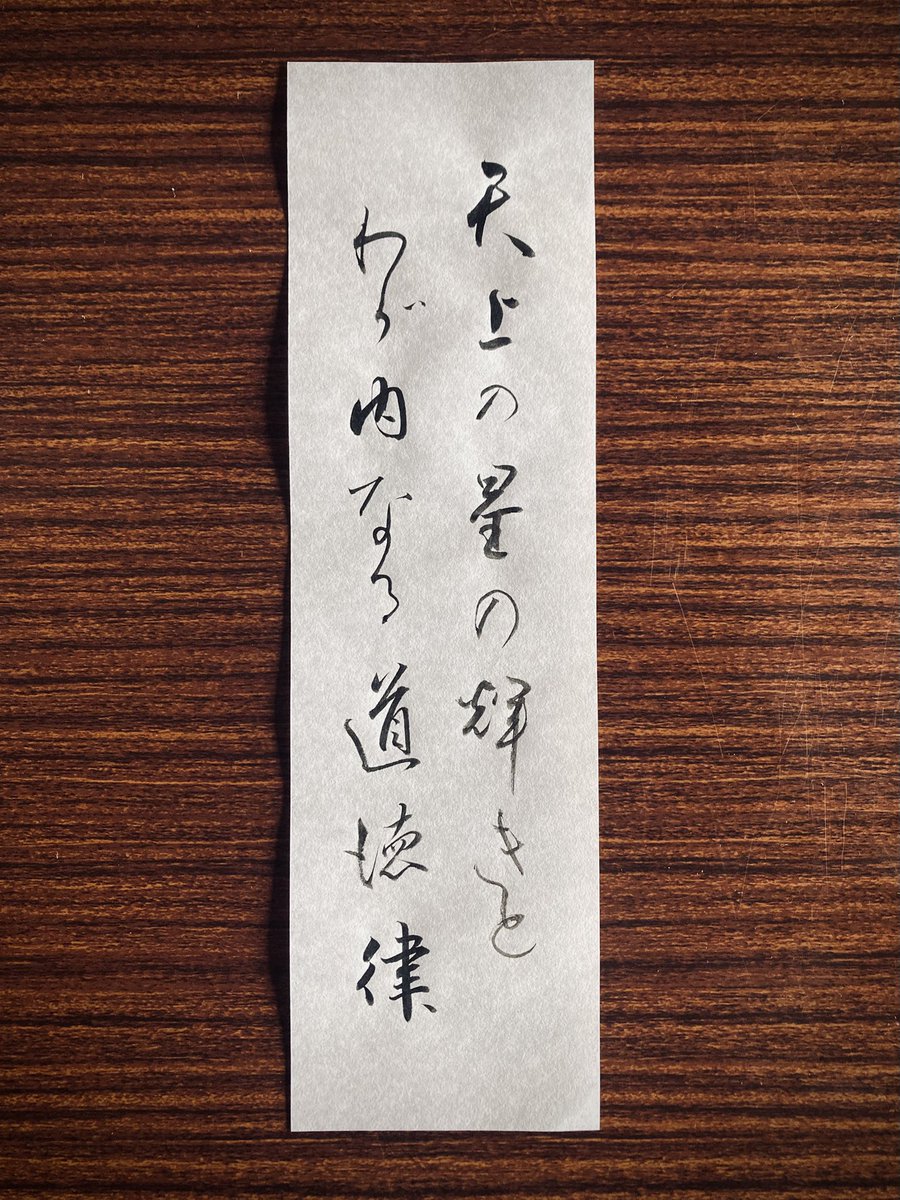 天上の星の輝きと
わが内なる道徳律